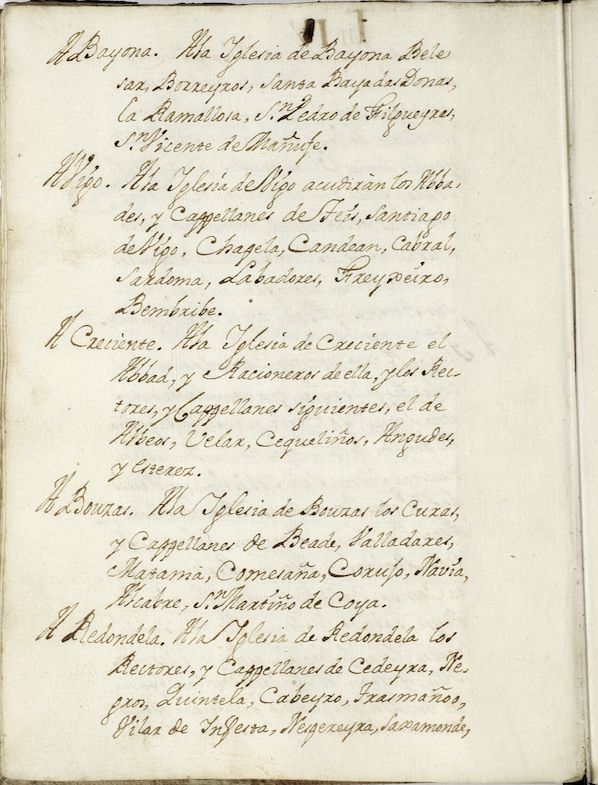 A Bayona. A la Iglesia de Bayona Bele
sar, Borreyros, Santa Baya das Donas,
la Ramallosa, Sn. Pedro de Filgueyras,
Sn. Vicente de Mañufe.
A Vigo. A la Iglesia de Vigo acudiràn los Abba-
des, y Cappellanes de Teis, Santiago
de Vigo, Chapela, Candean, Cabral,
Sardoma, Labadores, Freyxeiro,
Bembribe.
A Creciente. A la Iglesia de Creciente el
Abbad, y Racioneros de ella, y los Rec-
tores, y Cappellanes siguientes, el de
Albeos, Velar, Cequeliños, Angudes,
y Esterez.
A Bouzas. A la Iglesia de Bouzas los Curas,
y Cappellanes de Beade, Valladares,
Matamà, Comesaña, Corujo, Navia,
Alcabre, Sn. Martiño de Coya.
A Redondela. A la Iglesia de Redondela los
Rectores, y Cappellanes de Cedeyra, Ne-
gros, Quintela, Cabeyro, Trasmañoo,
Vilar de Infesta, Nespereyra, Saxamonde,